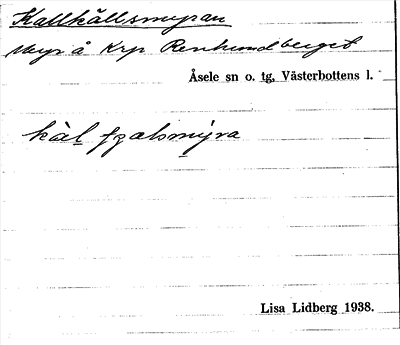 Kallkällsmyran
Myr å Krp Renhundberget
Åsele sn o. tg, Västerbottens l.
Lisa Lidberg 1938.